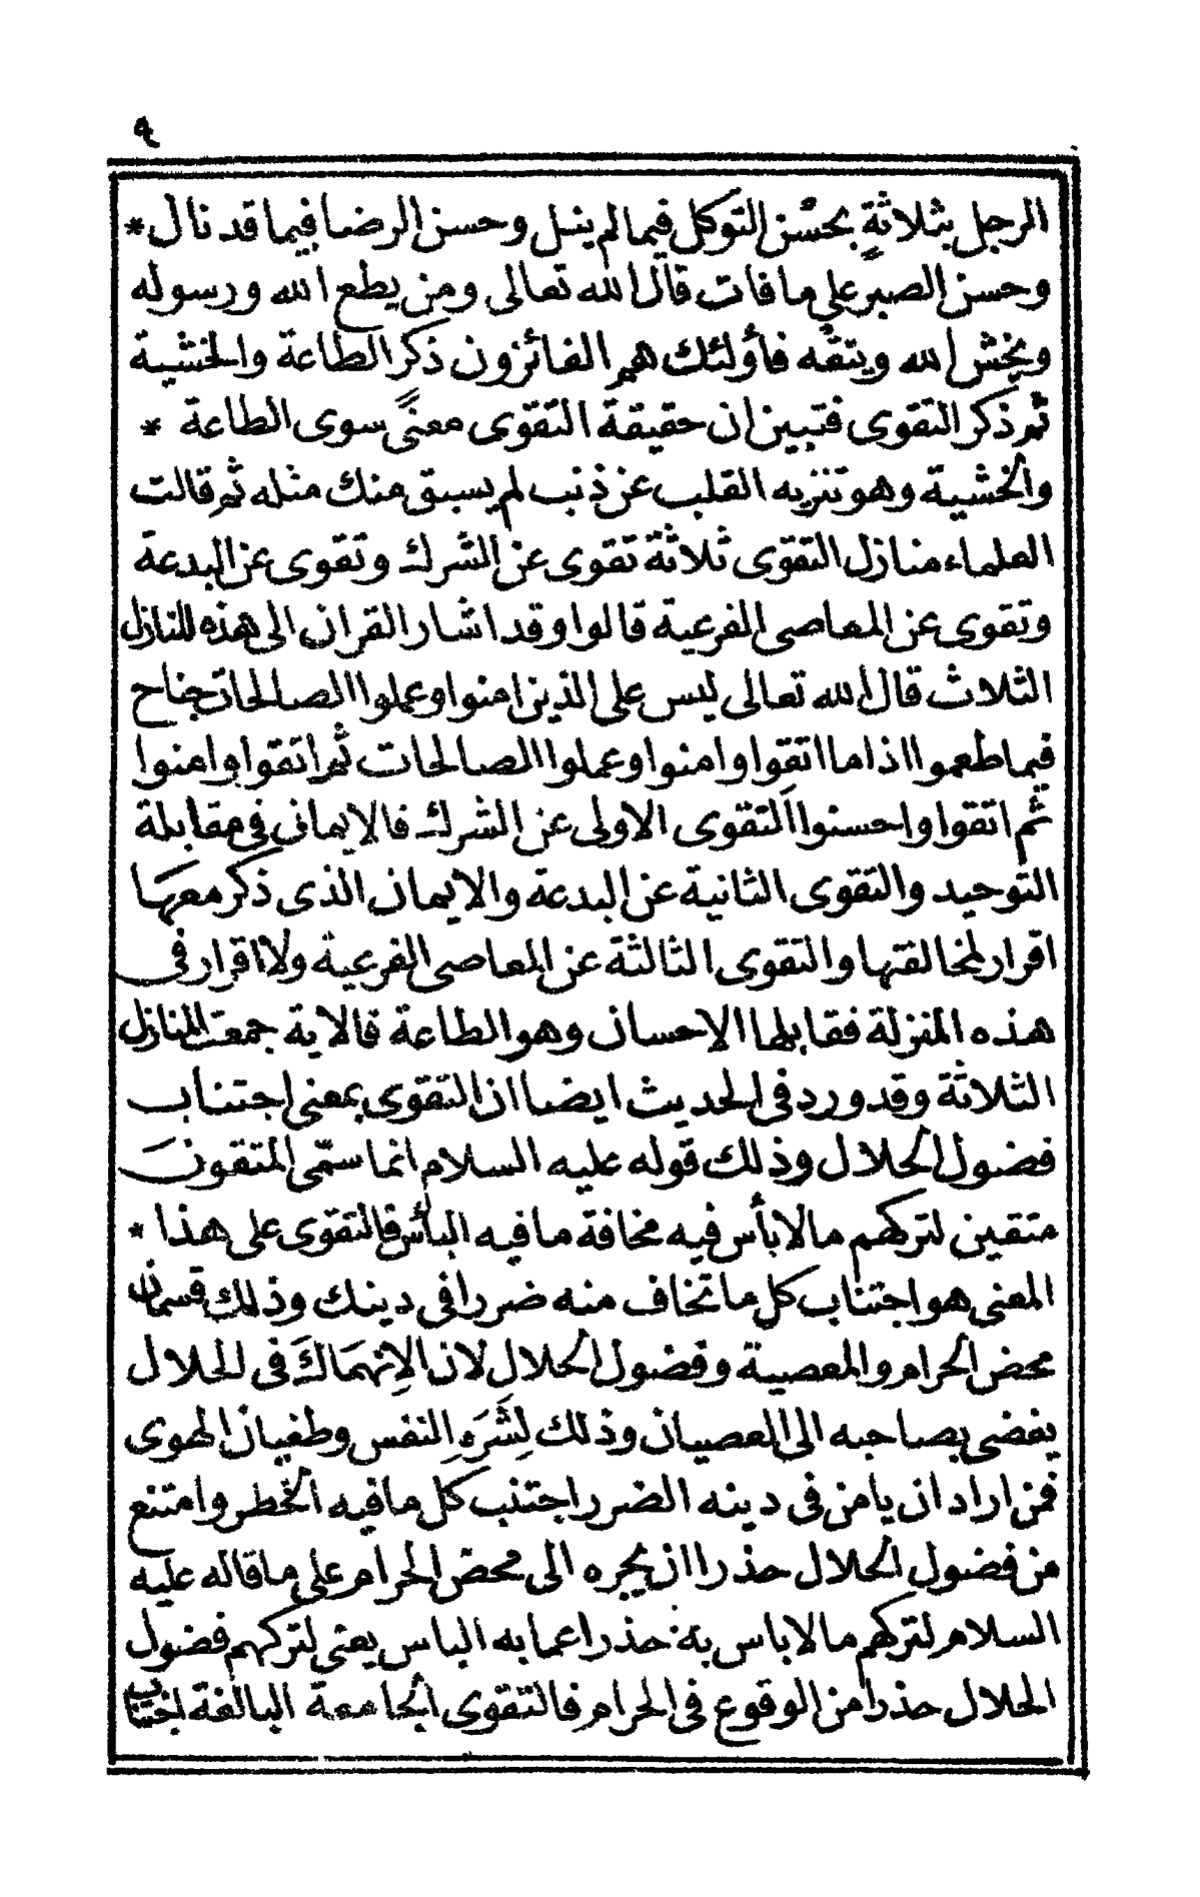 ٩
الرجل بثلاثةٍ بحسْن التوكل فيما لم ينل وحسن الرضا فيما قد نال *
وحسن الصبر على ما فات قال الله تعالى ومن يطع الله ورسوله
ويخش الله ويتقه فأولئك هم الفائزون ذكر الطاعة والخشية
ثم ذكر التقوى فتبين ان حقيقة التقوى معنًى سوى الطاعة *
والخشية وهو تنزيه القلب عن ذنب لم يسبق منك مثله ثم قالت
العلماء منازل التقوى ثلاثة تقوى عن الشرك وتقوى عن البدعة
وتقوى عن المعاصى الفرعية قالوا وقد اشار القران الى هذه المنازل
الثلاث قال الله تعالى ليس على الذين امنوا وعملوا الصالحات جناح
فيما طعموا اذا ما اتقوا وامنوا وعملوا الصالحات ثم اتقوا وامنوا
ثم اتقوا واحسنوا التقوى الاولى عن الشرك فالايمان فى مقابلة
التوحيد والتقوى الثانية عن البدعة والايمان الذى ذكر معهَا
اقرار لمخالفتها والتقوى الثالثة عن المعاصى الفرعية ولا اقرار فى
هذه المنزلة فقابلها الاحسان وهو الطاعة فالاية جمعت المنازل
الثلاثة وقد ورد فى الحديث ايضا ان التقوى بمعنى اجتناب
فضول الحلال وذلك قوله عليه السلام انما سمّى المتقونَ
متقين لتركهم ما لا بأس فيه مخافة ما فيه البأس فالتقوى على هذا *
المعنى هو اجتناب كل ما تخاف منه ضررا فى دينك وذلك قسمان
محض الحرام والمعصية وفضول الحلال لان الاِنهمَاكَ فى الحلال
يفضى بصاحبه الى العصيان وذلك لِشَرَهِ النفس وطغيان الهوى
فمن اراد ان يامن فى دينه الضرر اجتنب كل ما فيه الخطر وامتنع
من فضول الحلال حذرا ان يجره الى محض الحرام على ما قاله عليه
السلام لتركهم ما لا باس به حذرا عما به الباس يعنى لتركهم فضول
الحلال حذرا من الوقوع فى الحرام فالتقوى الجامعة البالغة اجتناب